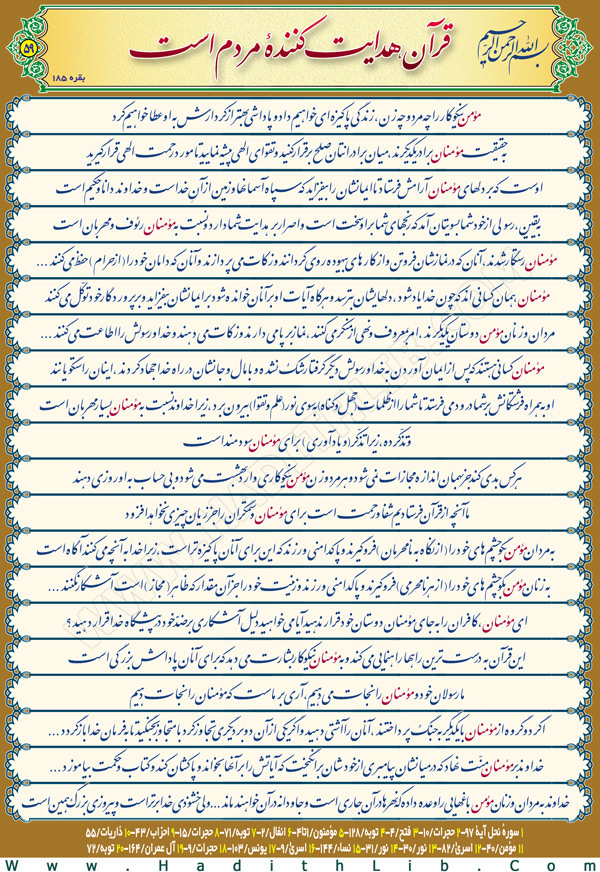 بسم الله الرحمن الرحیم
قرآن، هدایت کنندهٔ مردم است
۵۹
بقره ۱۸۵
مؤمن نیکوکار را چه مرد و چه زن، زندگی پاکیزه ای خواهیم داد و پاداشی بهتر از کردارش به او عطا خواهیم کرد
به حقیقت مؤمنان برادر یکدیگرند، میان برادرانتان صلح برقرار کنید و تقوای الهی پیشه نمایید تا مورد رحمت الهی قرار گیرید
اوست که بر دلهای مؤمنان آرامش فرستاد تا ایمانشان را بیفزاید که سپاه آسمانها و زمین از آنِ خداست و خداوند دانا و حکیم است
یقین، رسولی از خود شما بسویتان آمد که رنجهای شما بر او سخت است و اصرار بر هدایت شما دارد و نسبت به مؤمنان رئوف و مهربان است
مؤمنان رستگار شدند، آنان که در نمازشان فروتن و از کارهای بیهوده روی گردانند و زکات می پردازند و آنان که دامان خود را (از حرام) حفظ می کنند ...
مؤمنان، همان کسانی اند که چون خدا یاد شود، دلهایشان بترسد و هرگاه آیات او بر آنان خوانده شود بر ایمانشان بیفزاید و بر پروردگار خود توکّل می کنند
مردان و زنان مؤمن دوستان یکدیگرند، امر بمعروف و نهی از منکر می کنند، نماز بر پا می دارند و زکات می دهند و خدا و رسولش را اطاعت می کنند...
مؤمنان کسانی هستند که پس از ایمان آوردن به خدا و رسولش دیگر گرفتار شک نشده و با مال و جانشان در راه خدا جهاد کردند، اینان راستگویانند
او به همراه فرشتگانش بر شما درود می فرستد تا شما را از ظلمات (جهل و گناه) بسوی نور (علم و تقوا) بیرون برد، زیرا خداوند نسبت به مؤمنان بسیار مهربان است
و تذکّر ده، زیرا تذکّر (و یادآوری) برای مؤمنان سودمند است
هر کس بدی کند جز بهمان اندازه مجازات نمی شود و هر مرد و زن مؤمن نیکوکاری وارد بهشت می شود و بی حساب به او روزی دهند
ما آنچه از قرآن فرستادیم شفا و رحمت است برای مؤمنان و ستمگران را جز زیان چیزی نخواهد افزود
به مردان مؤمن بگو چشم های خود را (از نگاه به نامحرمان) فرو گیرند و پاکدامنی ورزند که این برای آنان پاکیزه تر است، زیرا خدا به آنچه می کنند آگاه است
به زنان مؤمن بگو چشم های خود را (از هر نامحرمی) فرو گیرند و پاکدامنی ورزند و زینت خود را جز آن مقدار که ظاهر (مجاز) است آشکار نکنند...
ای مؤمنان، کافران را به جای مؤمنان دوستان خود قرار ندهید آیا می خواهید دلیل آشکاری بر ضدّ خود در پیشگاه خدا قرار دهید؟
این قرآن به درست ترین راهها راهنمایی می کند و به مؤمنان نیکوکار بشارت می دهد که برای آنان پاداش بزرگی است
ما رسولان خود و مؤمنان را نجات می دهیم، آری بر ماست که مؤمنان را نجات دهیم
اگر دو گروه از مؤمنان با یکدیگر به جنگ پرداختند، آنان را آشتی دهید و اگر یکی از آن دو بر دیگری تجاوز کرد با متجاوز بجنگید تا به فرمان خدا بازگردد...
خداوند بر مؤمنان منّت نهاد که در میانشان پیامبری از خودشان برانگیخت که آیاتش را بر آنها بخواند و پاکشان کند و کتاب و حکمت بیاموزد...
خداوند به مردان و زنان مؤمن باغهایی را وعده داده که نهرها در آن جاری است و جاودانه در آن خواهند ماند...ولی خشنودی خدا برتر است و پیروزی بزرگ همین است
۱ سوره نحل آیهٔ ۹۷-۲ حجرات/۱۰-۳ فتح/۴-۴ توبه/۱۲۸-۵ مؤمنون/۱تا۴-۶ انفال/۲-۷ توبه/۷۱-۸ حجرات/۱۵-۹ احزاب/۴۳-۱۰ ذاریات/۵۵
۱۱ مؤمن/۴۰-۱۲ اسریٰ/۸۲-۱۳ نور/۳۰-۱۴ نور/۳۱-۱۵ نساء/۱۴۴-۱۶ اسریٰ/۹-۱۷ یونس/۱۰۳-۱۸ حجرات/۹-۱۹ آل عمران/۱۶۴-۲۰ توبه/۷۲
www.HadithLib.com